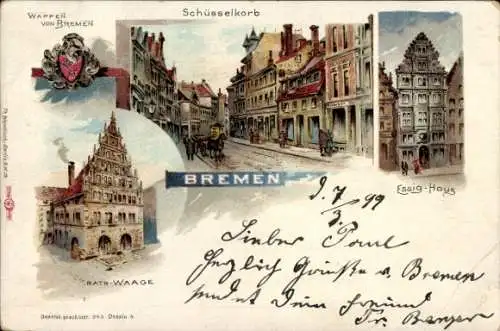 Schüsselkorb
WAPPEN
VON BREMEN
BREMEN
ESSIG-HAUS
RATS-WAAGE
9. 7/3. 99
Lieber Paul
Herzlich Grüße a. Bremen
sendet Dein Freund
Fr.